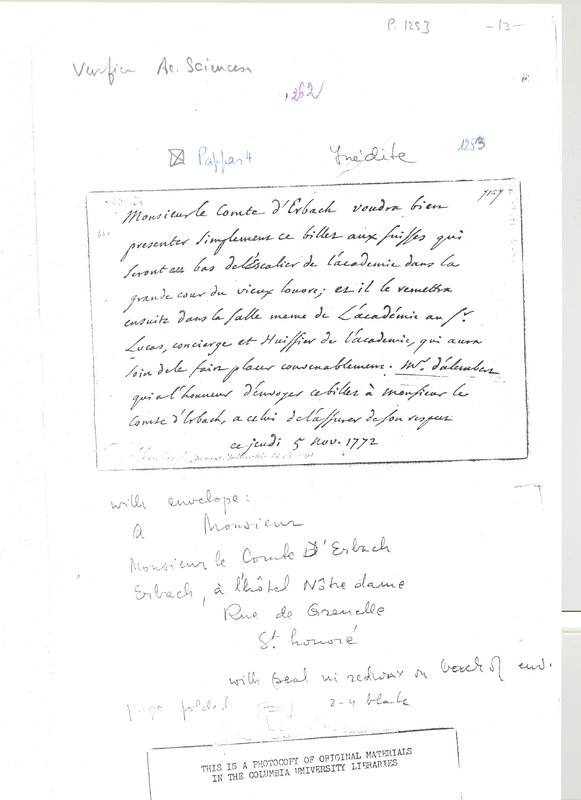 P. 1253 -13-
Verifier Ac. Sciences
262
Pappas 4 Inédite 1253
Monsieur le Comte d'Erbach voudra bien
presenter simplement ce billet aux suisses qui
seront au bas de l'Escalier de l'academie dans la
grande cour du vieux louvre; et il le remettra
ensuite dans la salle meme de L'académie au Sr.
Lucas, concierge et Huissier de l'academie, qui aura
soin de le faire placer convenablement. Mr. d'alembert
qui a l'honneur d'envoyer ce billet à monsieur le
comte d'Erbach, a celui de l'assurer de son respect
ce jeudi 5 nov. 1772
with envelope:
a Monsieur
Monsieur le Comte D'Erbach
Erbach, à l'hôtel Nôtre dame
Rue de Grenelle
St honoré
with seal in redwax on back of env.
page folded 2-4 blank
THIS IS A PHOTOCOPY OF ORIGINAL MATERIALS
IN THE COLUMBIA UNIVERSITY LIBRARIES